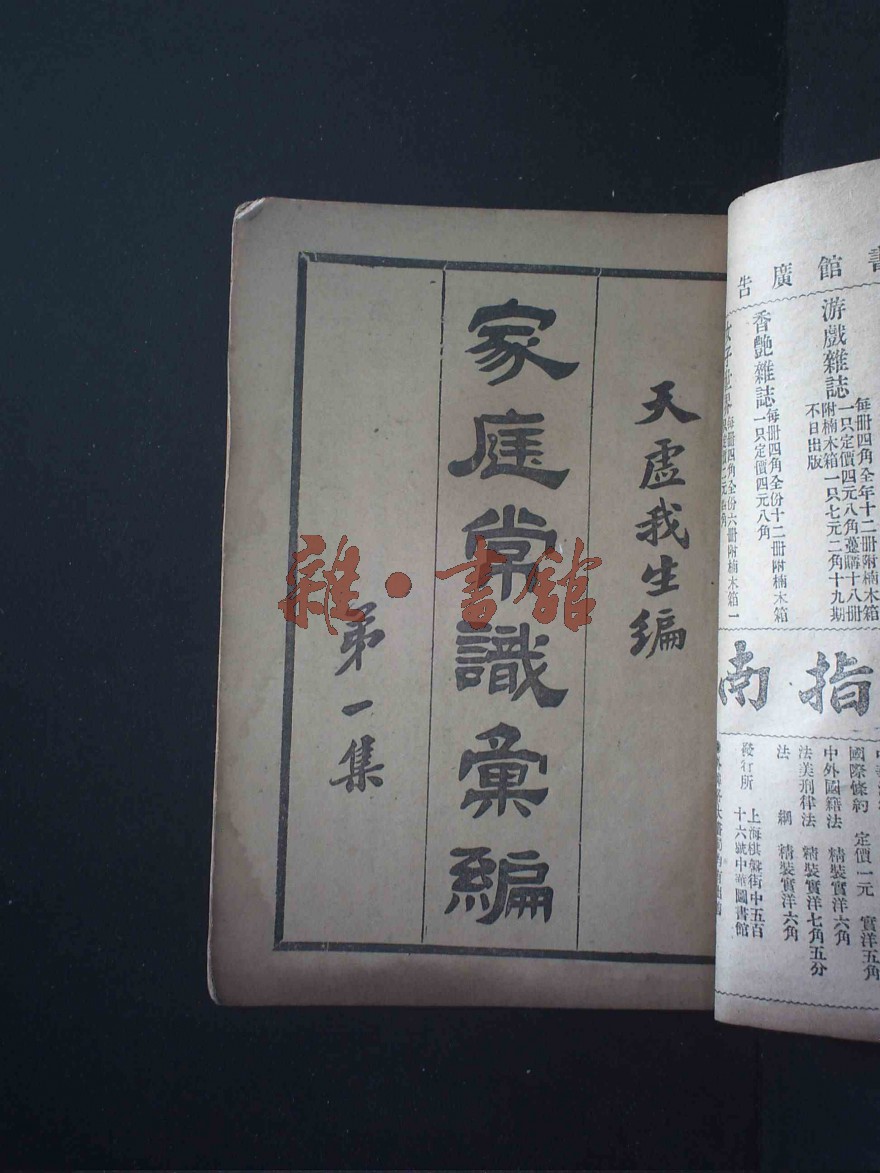 館廣告
游戲雜誌
每冊四角全年十二冊附楠木箱
一只定價四元八角蔓購十八冊
附楠木箱一只七元二角十九期
不日出版
香艷雜誌
每冊四角全份十二冊附楠木箱
一只定價四元八角
每冊四角全份六冊附楠木箱一
指南
國際條約 定價一元 實洋五角
中外國籍法 精裝實洋六角
法美刑律法 精裝實洋七角五分
法綱 精裝實洋六角
發行所 上海棋盤街中五百
十六號中華圖書館
天虛我生編
家庭常識彙編
第一集
雜·書館